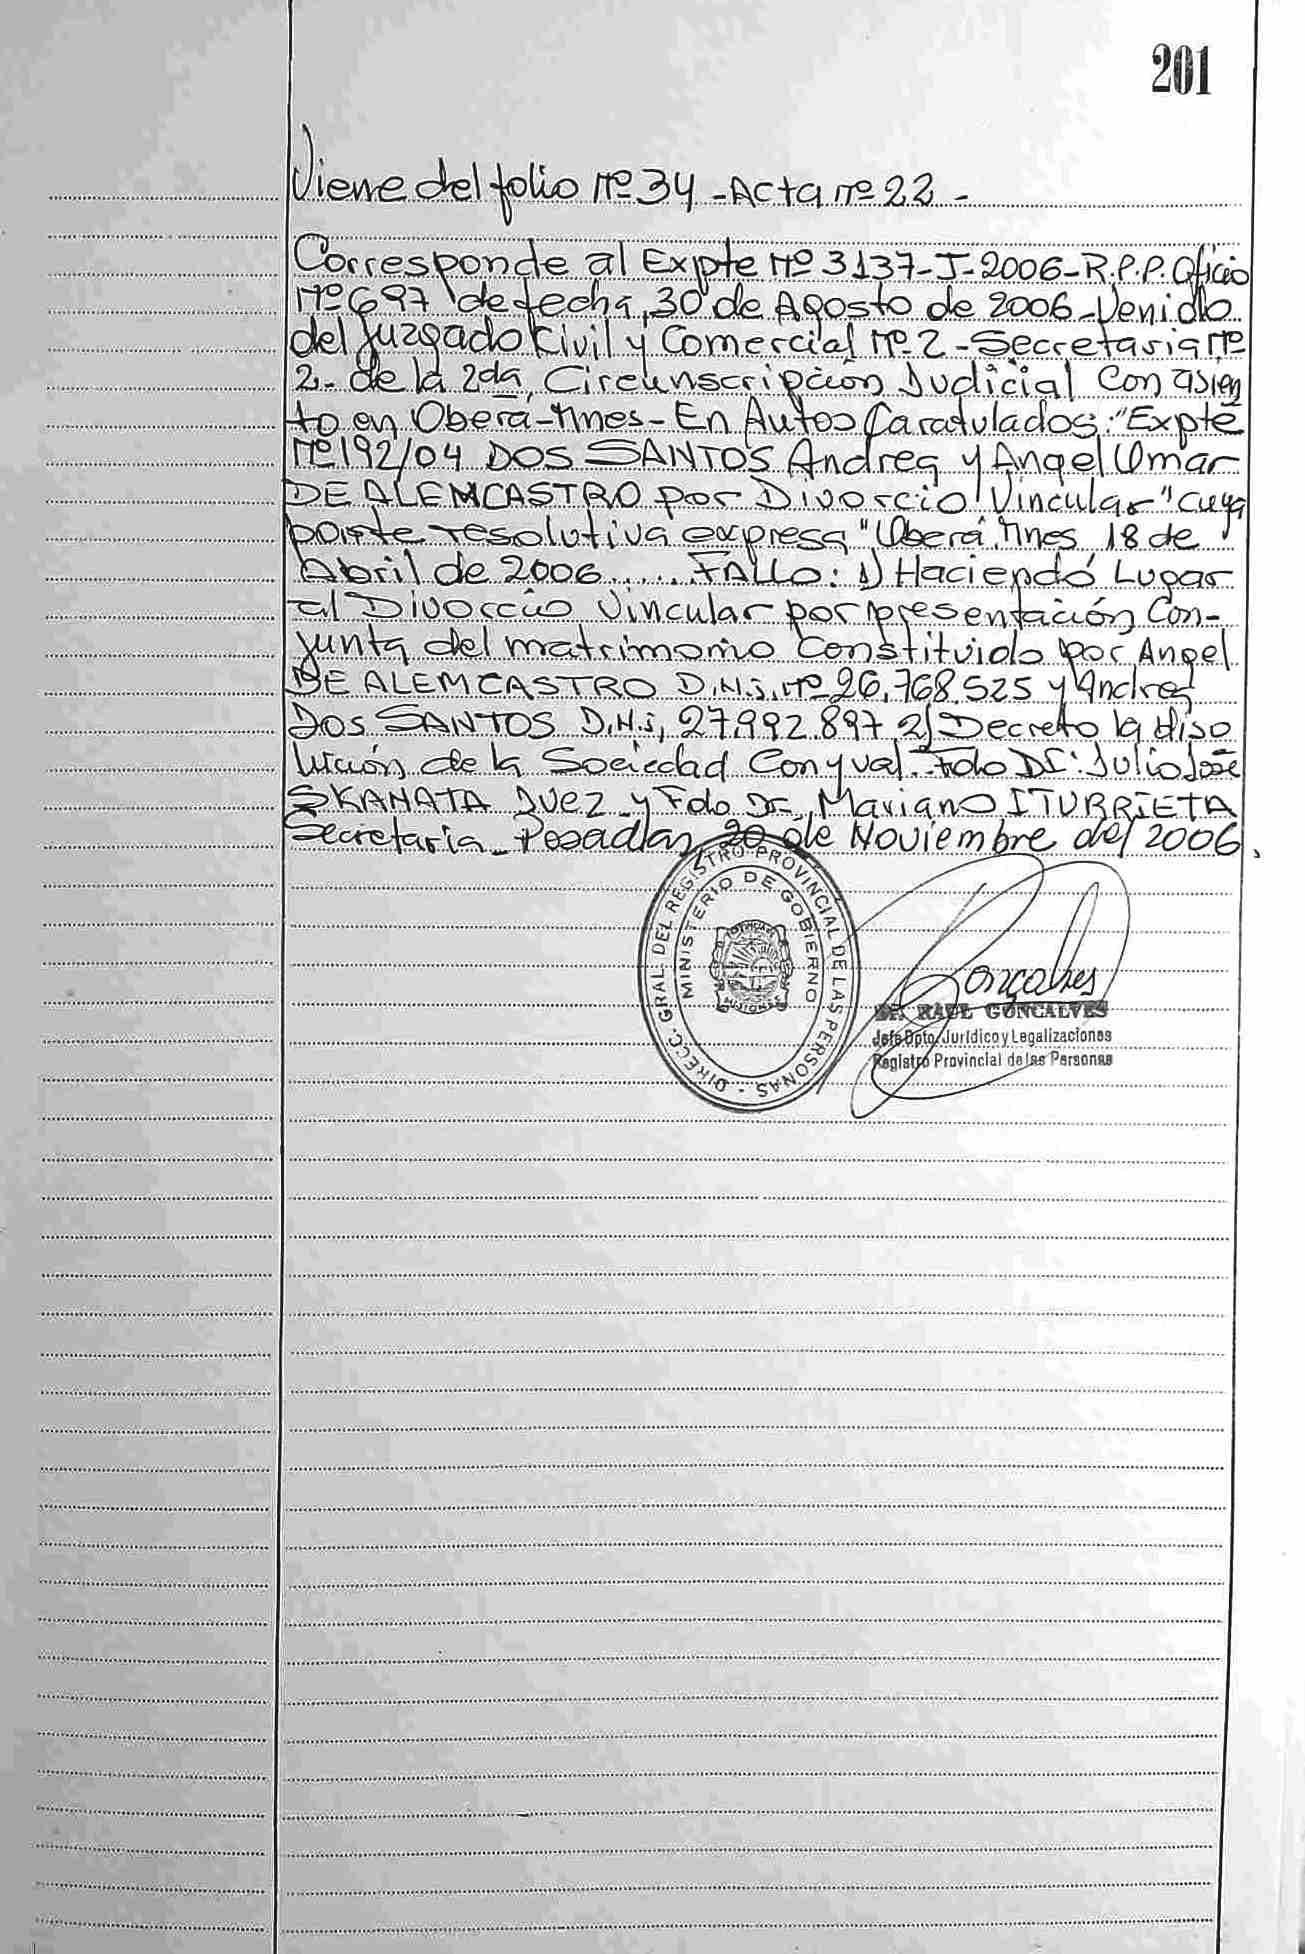 201
Viene del folio nº 34 - Acta nº 22 -
Corresponde al Expte nº 3137-J-2006-R.P.P. Oficio
nº 697 de fecha, 30 de Agosto de 2006 - Venido
del Juzgado Civil y Comercial nº 2 - Secretaria nº
2 - de la 2da, Circunscripción Judicial Con asien
to en Oberá - Mnes - En Autos Caratulados: "Expte
nº 192/04 DOS SANTOS Andrea y Angel Omar
DE ALEMCASTRO por Divorcio Vincular" cuya
parte resolutiva expresa "Oberá, Mnes, 18 de
Abril de 2006...... FALLO: 1) Haciendo Lugar
al Divorcio Vincular por presentación Con-
junta del matrimonio Constituido por Angel
DE ALEMCASTRO D.N.i. nº 26.768.525 y Andrea
DOS SANTOS D.N.i, 27.992.897 2) Decreto la diso
lución de la Sociedad Conyual. Fdo Dr: Julio José
SKANATA Juez y Fdo Dr, Mariano ITURRIETA
Secretaria - Posadas, 20 de Noviembre del 2006.
DIRECC. GRAL. DEL REGISTRO PROVINCIAL DE LAS PERSONAS -
MINISTERIO DE GOBIERNO
MISIONES
Gonçalves
Dr. RAUL GONCALVES
Jefe Dpto. Jurídico y Legalizaciones
Registro Provincial de las Personas